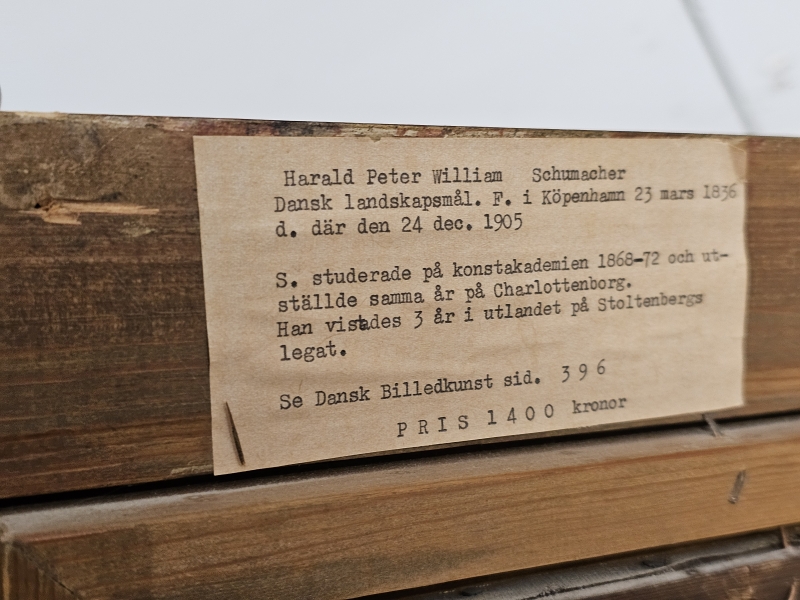 Harald Peter William Schumacher
Dansk landskapsmål. F. i Köpenhamn 23 mars 1836
d. där den 24 dec. 1905
S. studerade på konstakademien 1868-72 och ut-
ställde samma år på Charlottenborg.
Han vistades 3 år i utlandet på Stoltenbergs
legat.
Se Dansk Billedkunst sid. 396
PRIS 1400 kronor